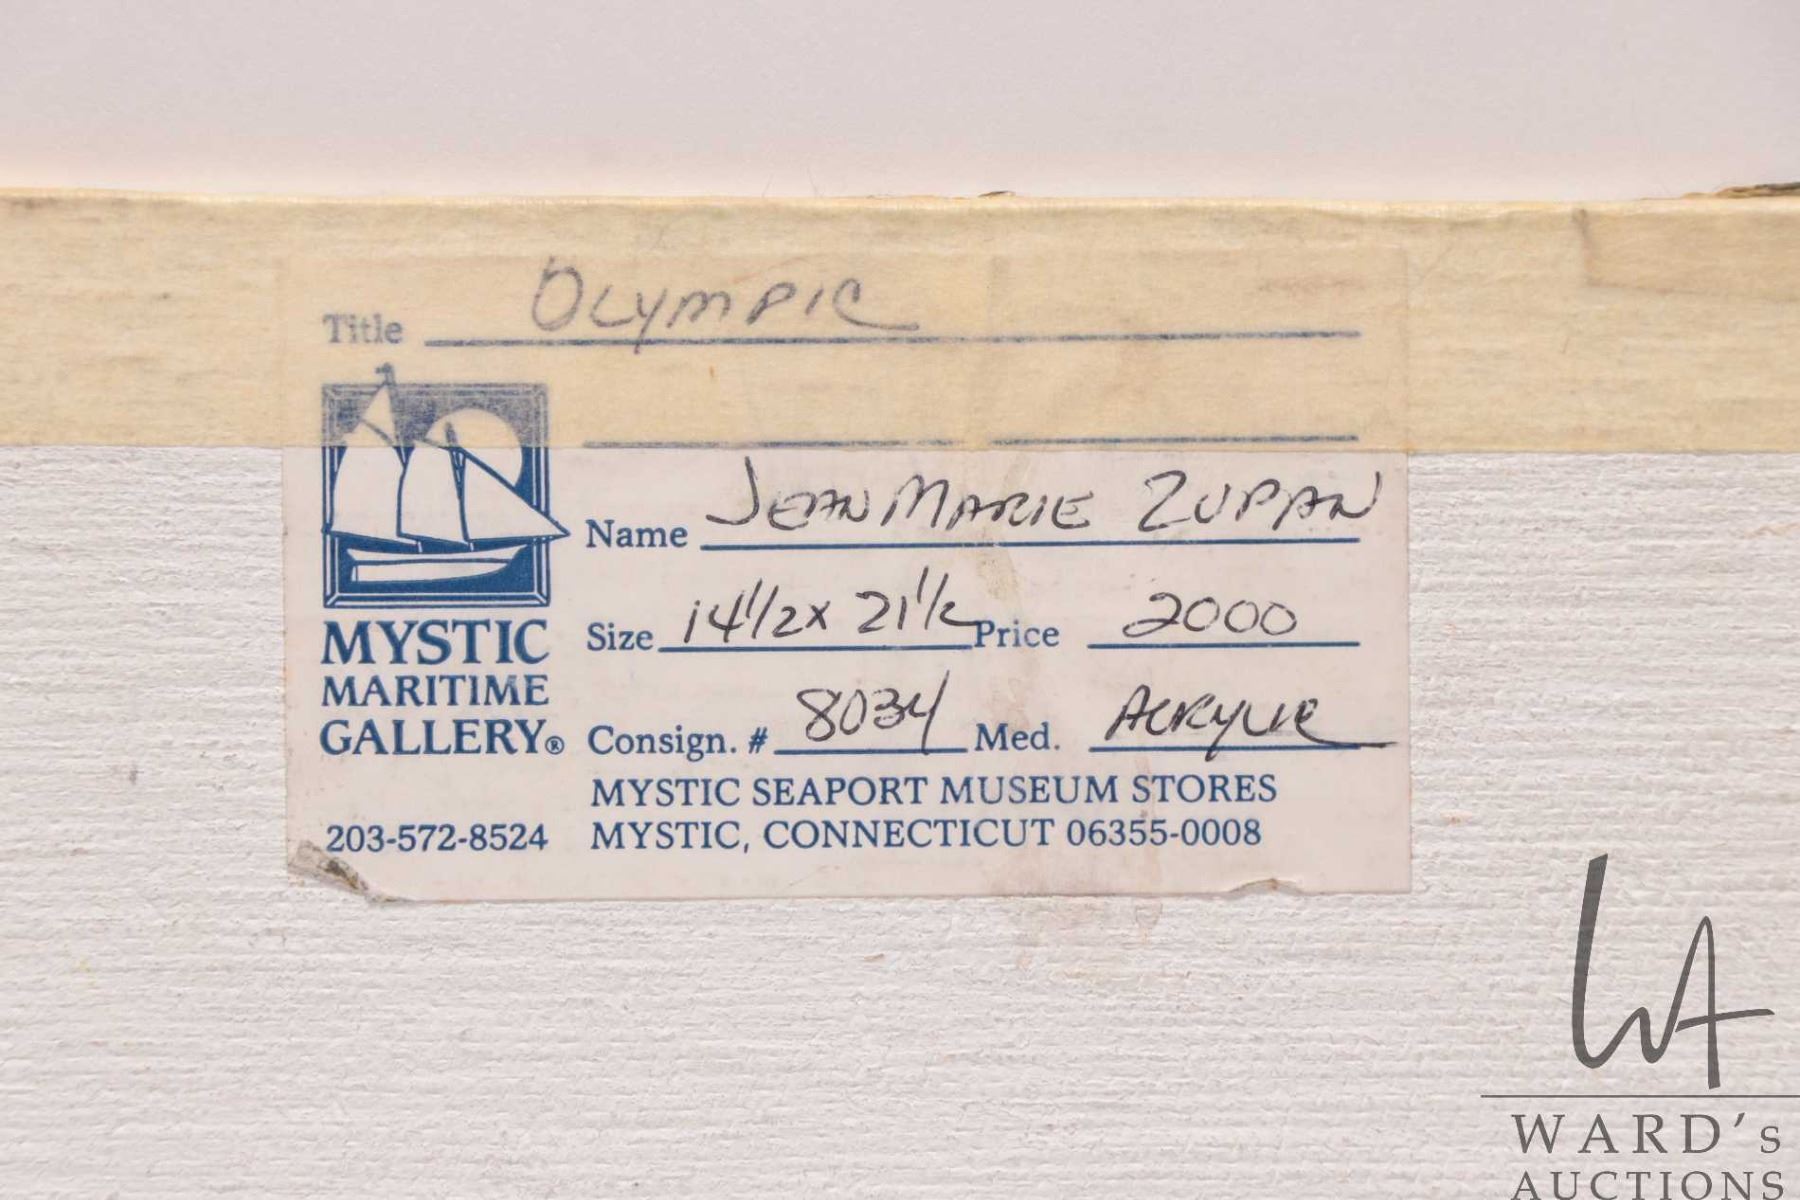 Title OLYMPIC
Name JEAN MARIE ZUPAN
Size 14 1/2 x 21 1/2 Price 2000
Consign. # 8034 Med. ACRYLIC
MYSTIC
MARITIME
GALLERY®
MYSTIC SEAPORT MUSEUM STORES
203-572-8524 MYSTIC, CONNECTICUT 06355-0008
WA
WARD's
AUCTIONS